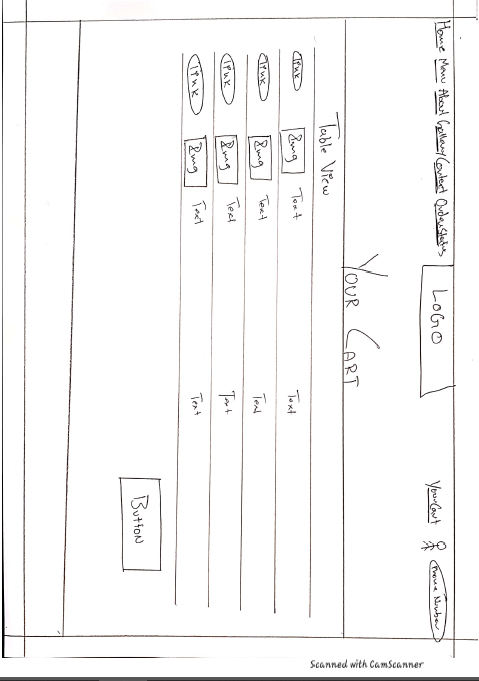 Home Menu About Gallery Contact Order Status
LOGO
Your Cart
Phone Number
YOUR CART
Table View
Link Img Text Text
Link Img Text Text
Link Img Text Text
Link Img Text Text
BUTTON
Scanned with CamScanner